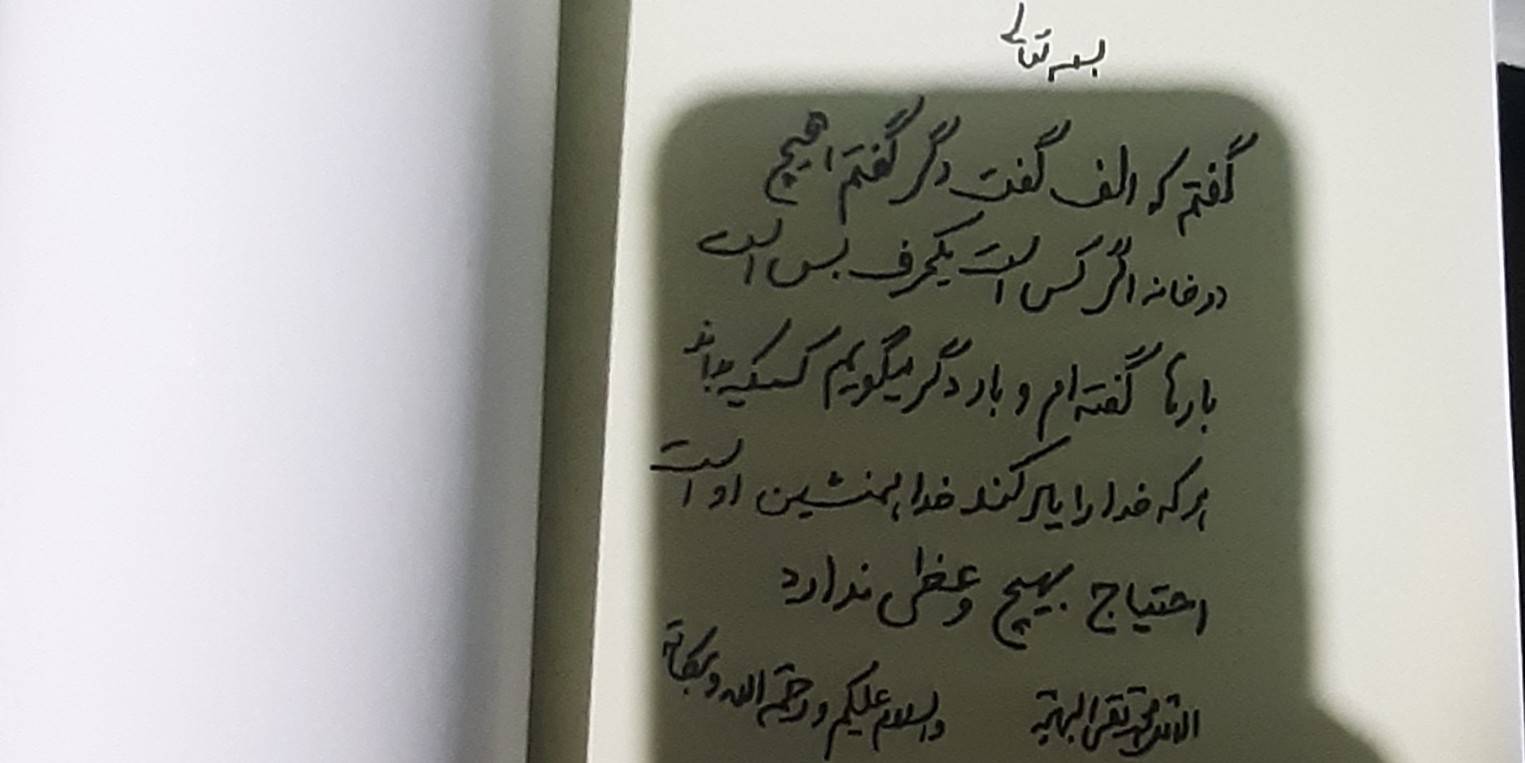 بسمه تعالی
گفتم که الف گفت دگر گفتم هیچ
در خانه اگر کس است یکحرف بس است
بارها گفته‌ام و بار دگر میگویم کسیکه بداند
هر که خدا را یاد کند خدا همنشین اوست
احتیاج بهیچ وعظی ندارد
الاقل محمد تقی البهجة والسلام علیکم ورحمة الله وبرکاته